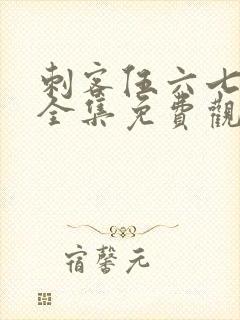 刺客伍六七
全集免費觀
宿馨元